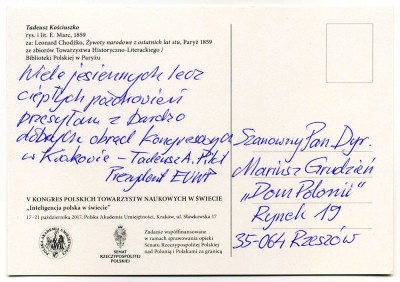 Tadeusz Kościuszko
rys. i lit. E. Marc, 1859
za: Leonard Chodźko, Żywoty narodowe z ostatnich lat stu, Paryż 1859
ze zbiorów Towarzystwa Historyczno-Literackiego /
Biblioteki Polskiej w Paryżu
Wiele jesiennych lecz
ciepłych pozdrowień
przesyłam z bardzo
dobrych obrad Kongresowych
w Krakowie – Tadeusz A. Pilat
Prezydent EUWP
V KONGRES POLSKICH TOWARZYSTW NAUKOWYCH W ŚWIECIE
„Inteligencja polska w świecie”
17–21 października 2017, Polska Akademia Umiejętności, Kraków, ul. Sławkowska 17
SENAT
RZECZYPOSPOLITEJ
POLSKIEJ
Zadanie współfinansowane
w ramach sprawowania opieki
Senatu Rzeczypospolitej Polskiej
nad Polonią i Polakami za granicą
Szanowny Pan Dyr.
Mariusz Grudzień
„Dom Polonii”
Rynek 19
35-064 Rzeszów